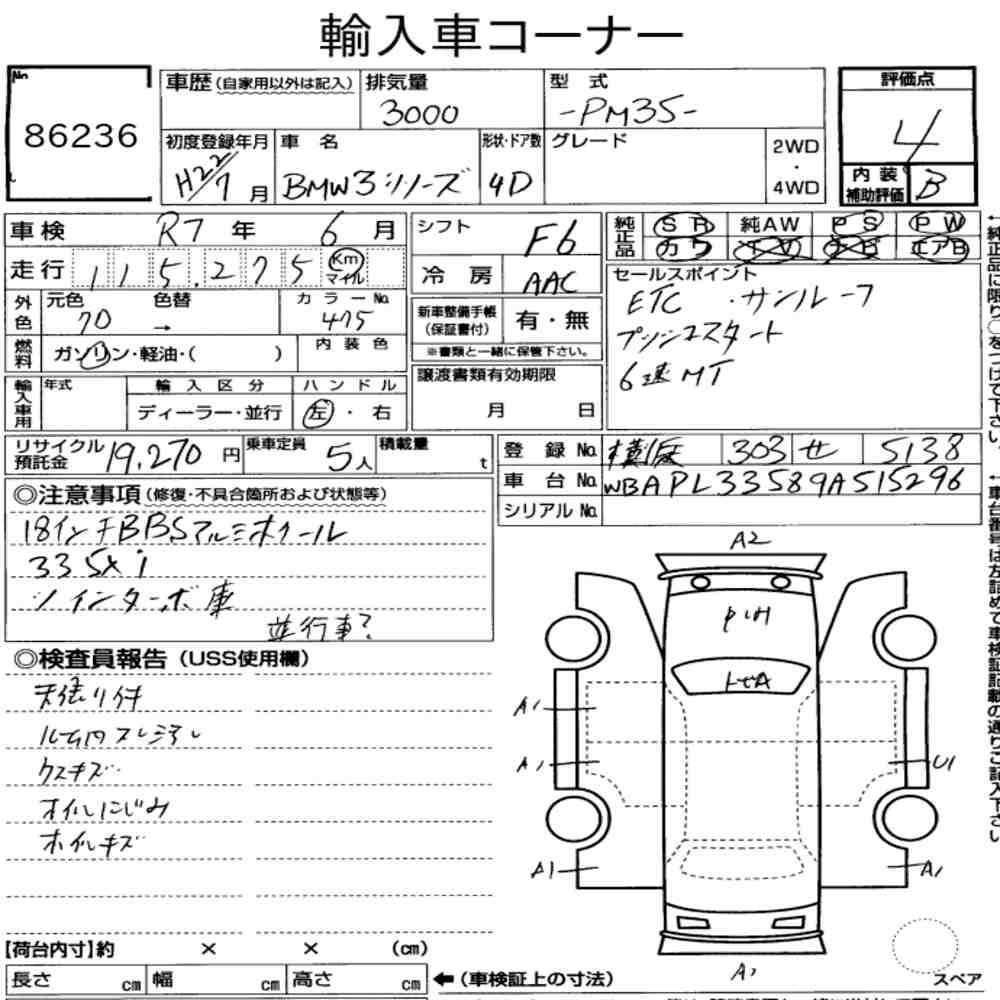 輸入車コーナー
No.
86236
車歴 (自家用以外は記入)
排気量
3000
型 式
-PM35-
評価点
4
初度登録年月
H22/7 月
車 名
BMW3シリーズ
形状・ドア数
4D
グレード
2WD
・
4WD
内 装
補助評価
B
車検 R7 年 6 月
シフト
F6
純正品
SR 純AW PS PW
カワ TV ナビ エアB
走行 115,275 Km
マイル
冷 房
AAC
セールスポイント
ETC ・サンルーフ
プッシュスタート
6速MT
外色
元色 色替
70 →
カラーNo.
475
新車整備手帳
(保証書付)
有・無
※書類と一緒に保管下さい。
燃料
ガソリン・軽油・( )
内 装 色
譲渡書類有効期限
月 日
輸入車用
年式
輸 入 区 分
ディーラー・並行
ハ ン ド ル
左・右
リサイクル
預託金
19,270 円
乗車定員
5人
積載量
t
登 録 No. 横浜 303 せ 5138
車 台 No. WBAPL33589A515296
シリアル No.
◎注意事項 (修復・不具合箇所および状態等)
18インチBBSアルミホイール
335xi
ツインターボ車
並行車?
◎検査員報告 (USS使用欄)
天張り件
ルーム内スレ汚レ
ウスキズ
オイルにじみ
ホイルキズ
A2
PハH
トヒA
A1
A1
U1
A1
A1
A2
スペア
【荷台内寸】約 × × (cm)
長さ cm 幅 cm 高さ cm
← (車検証上の寸法)
←純正品に限り○をつけて下さい。
←車台番号は左詰めで車検証記載の通りご記入下さい